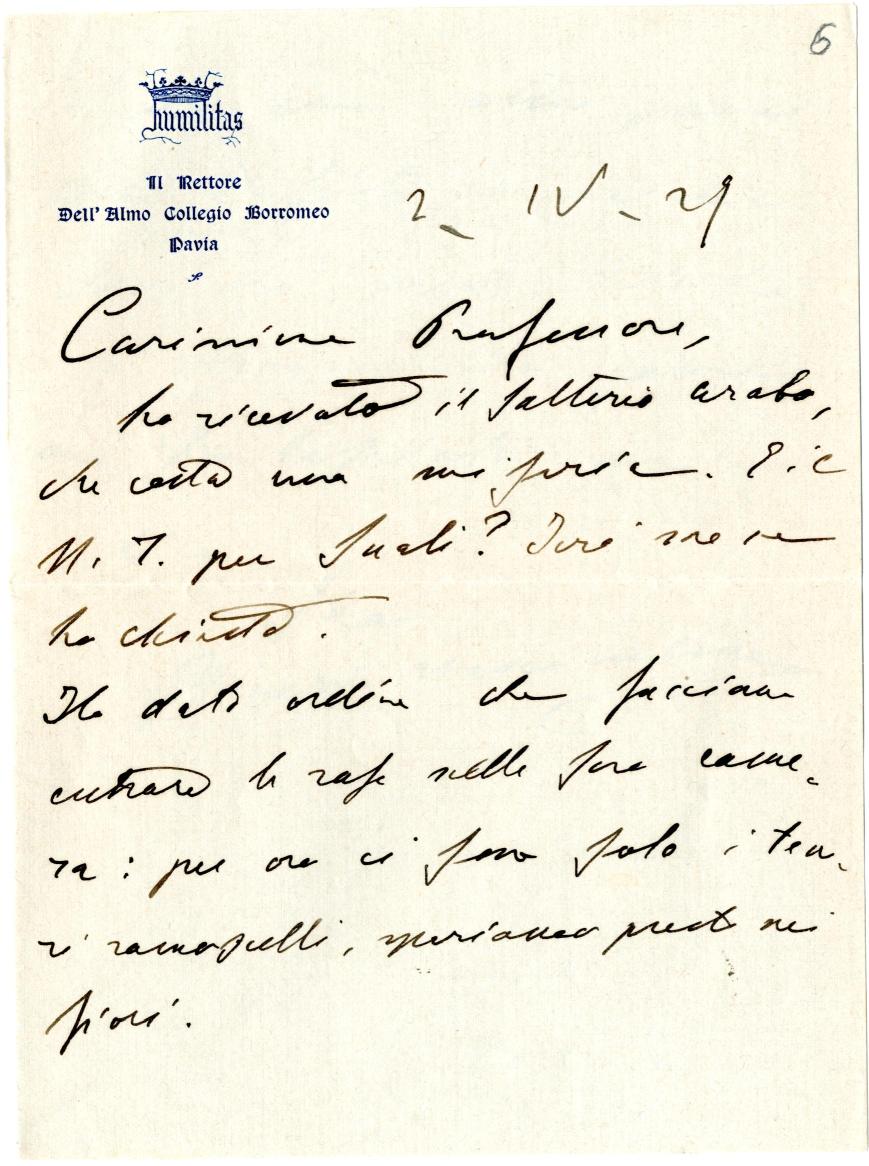 6
humilitas
Il Rettore
Dell'Almo Collegio Borromeo
Pavia
2 - IV - 29
Carissimo Professore,
ho ricevuto il salterio arabo,
che costa una miseria. E il
N. T. per Suali? Ieri me ne
ha chiesto.
Ho dato ordine che facciano
entrare le rose nella sua came-
ra: per ora ci sono solo i tene-
ri ramoscelli, speriamo presto nei
fiori.